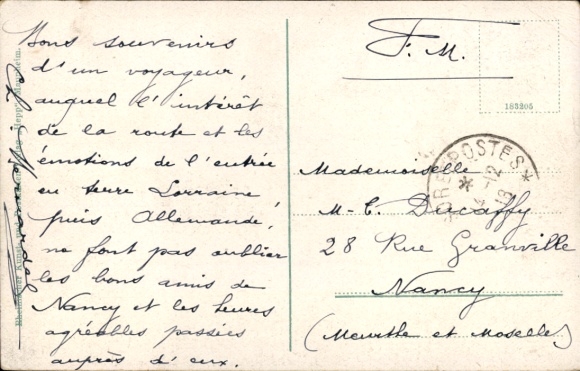 Bons souvenirs
d'un voyageur,
auquel l'intérêt
de la route et les
émotions de l'entrée
en terre Lorraine
puis Allemande,
ne font pas oublier
les bons amis de
Nancy et les heures
agréables passées
auprès d'eux.
F. M.
183205
POSTES *
12
18
Mademoiselle
M-C. Ducaffy
28 Rue Granville
Nancy
(Meurthe et Moselle)